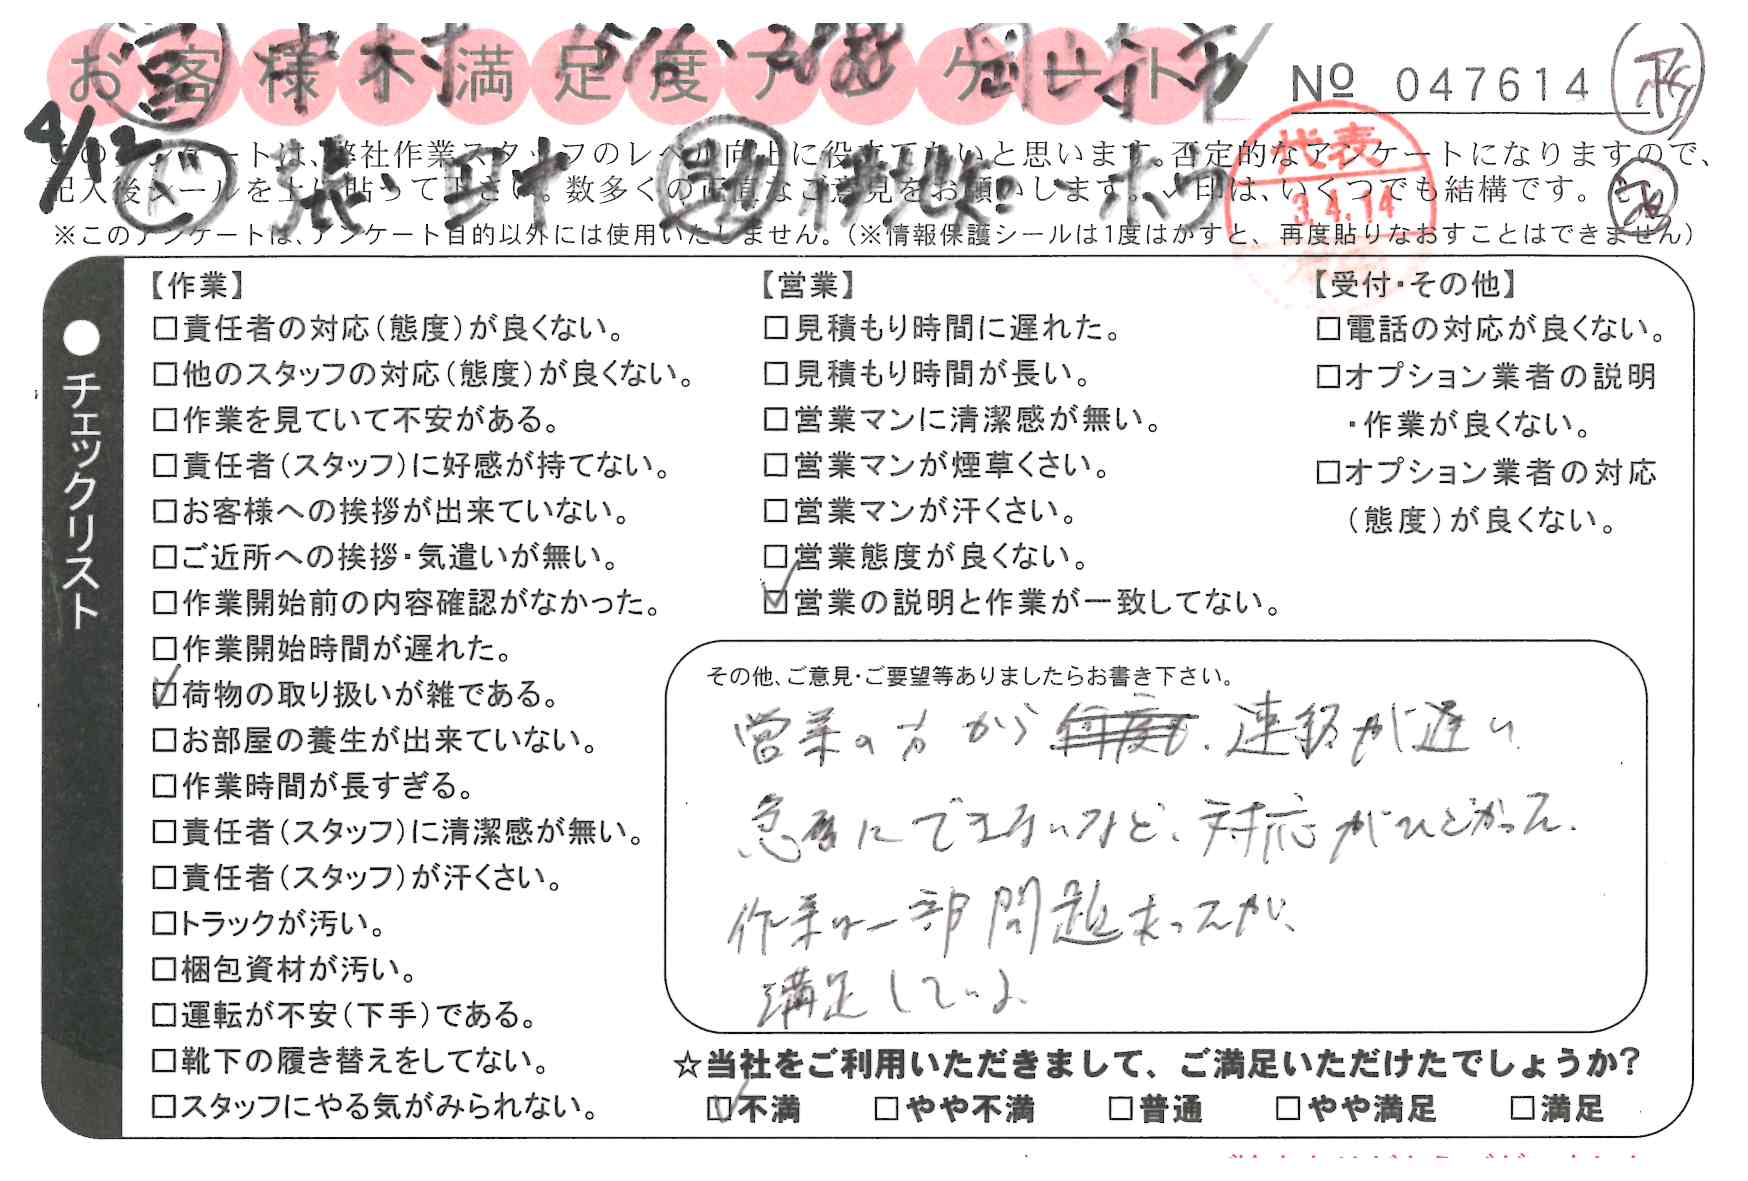 お客様不満足度アンケート
№ 047614
4/12
代表
3.4.14
このアンケートは、弊社作業スタッフのレベル向上に役立てたいと思います。否定的なアンケートになりますので、
記入後シールを上に貼って下さい。数多くの正直なご意見をお願いします。✓印は、いくつでも結構です。
※このアンケートは、アンケート目的以外には使用いたしません。(※情報保護シールは1度はがすと、再度貼りなおすことはできません)
●チェックリスト
【作業】
□責任者の対応(態度)が良くない。
□他のスタッフの対応(態度)が良くない。
□作業を見ていて不安がある。
□責任者(スタッフ)に好感が持てない。
□お客様への挨拶が出来ていない。
□ご近所への挨拶・気遣いが無い。
□作業開始前の内容確認がなかった。
□作業開始時間が遅れた。
☑荷物の取り扱いが雑である。
□お部屋の養生が出来ていない。
□作業時間が長すぎる。
□責任者(スタッフ)に清潔感が無い。
□責任者(スタッフ)が汗くさい。
□トラックが汚い。
□梱包資材が汚い。
□運転が不安(下手)である。
□靴下の履き替えをしてない。
□スタッフにやる気がみられない。
【営業】
□見積もり時間に遅れた。
□見積もり時間が長い。
□営業マンに清潔感が無い。
□営業マンが煙草くさい。
□営業マンが汗くさい。
□営業態度が良くない。
☑営業の説明と作業が一致してない。
【受付・その他】
□電話の対応が良くない。
□オプション業者の説明
・作業が良くない。
□オプション業者の対応
(態度)が良くない。
その他、ご意見・ご要望等ありましたらお書き下さい。
営業の方から 連絡が遅い
急にできないなど、対応がひどかった.
作業は一部問題あったが、
満足している.
☆当社をご利用いただきまして、ご満足いただけたでしょうか?
☑不満 □やや不満 □普通 □やや満足 □満足